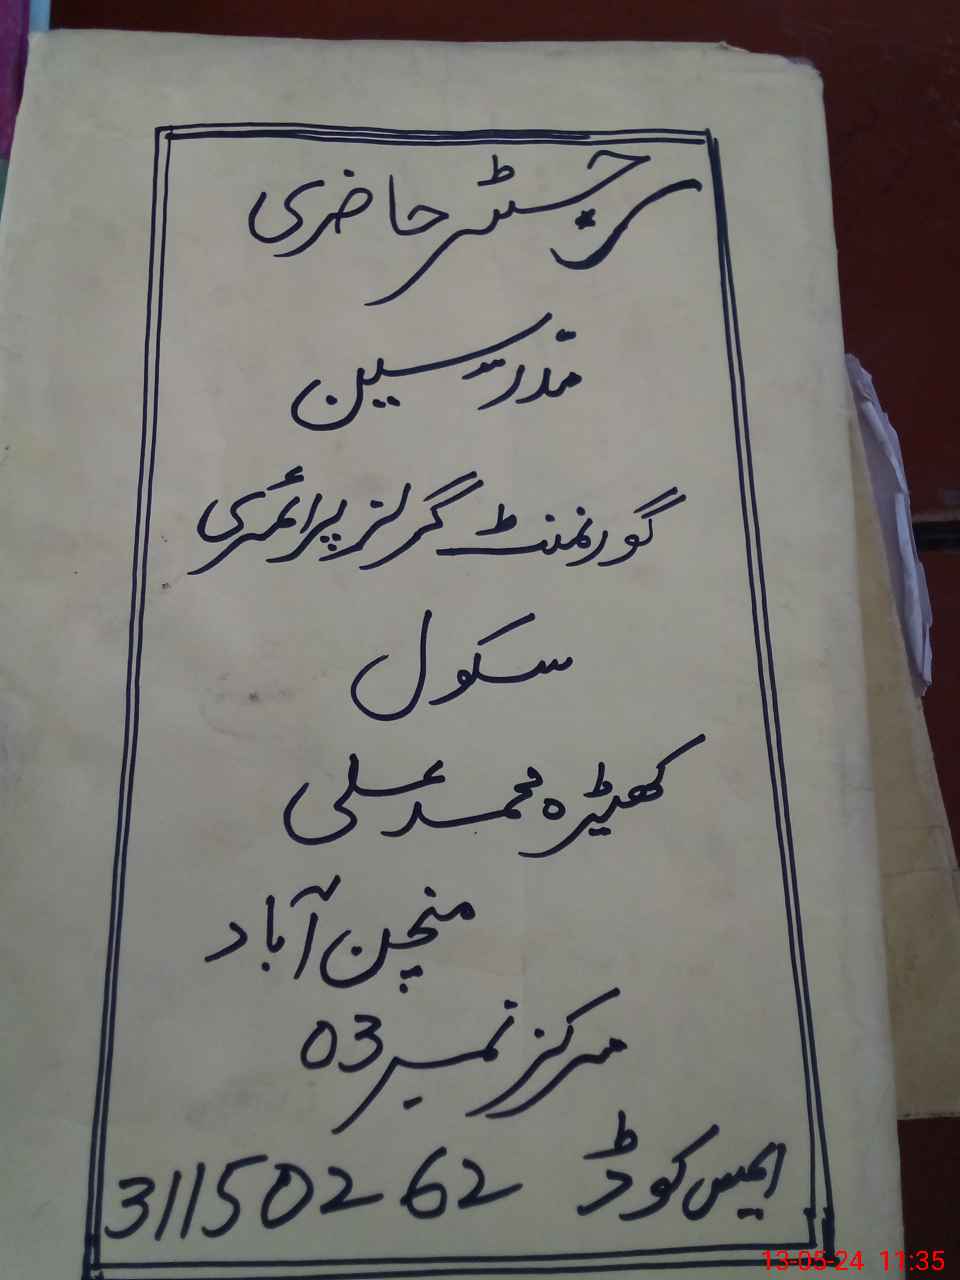 رجسٹر حاضری
مدرسین
گورنمنٹ گرلز پرائمری
سکول
کھیڑہ محمد علی
منچن آباد
مرکز نمبر 03
ایمس کوڈ 31150262
13-05-24 11:35